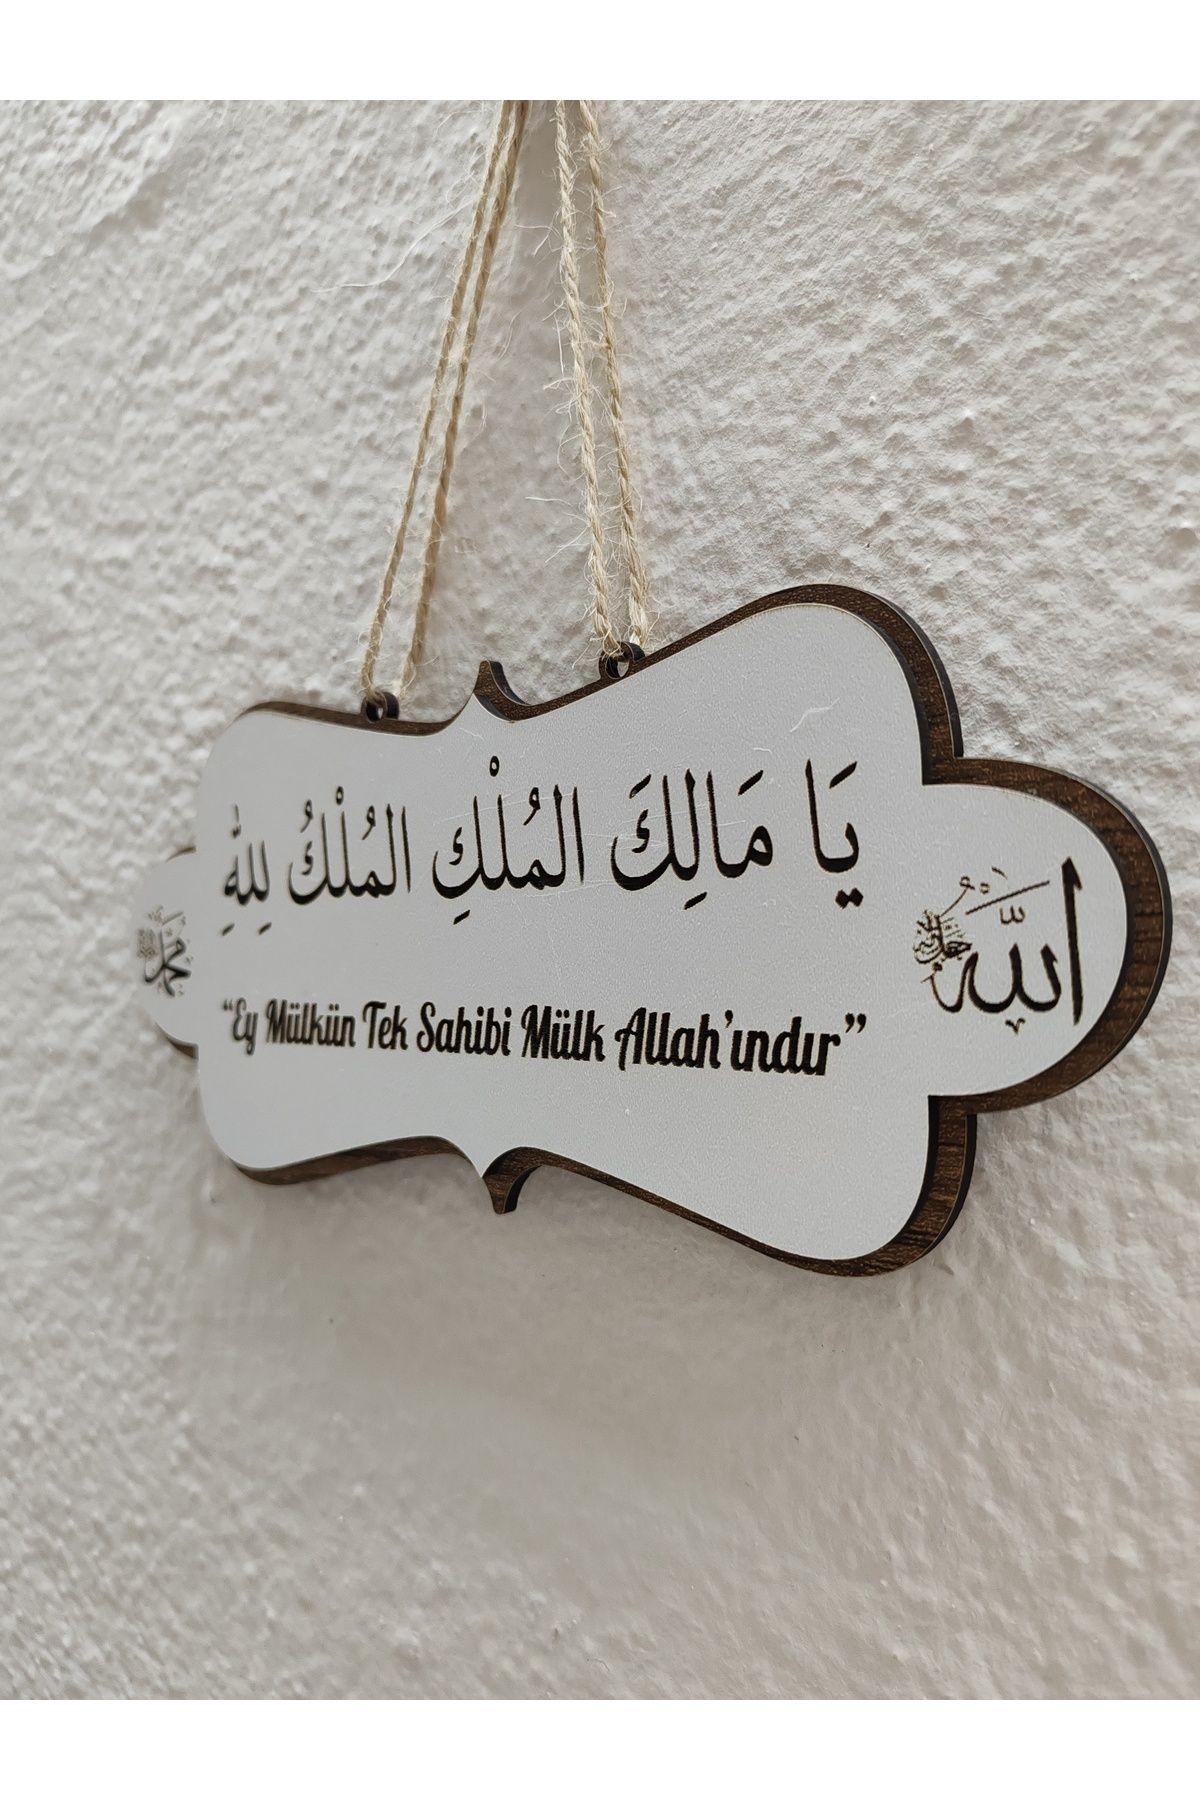 يَا مَالِكَ المُلْكِ المُلْكُ لِلَّهِ
“Ey Mülkün Tek Sahibi Mülk Allah’ındır”
الله جل جلاله
محمد